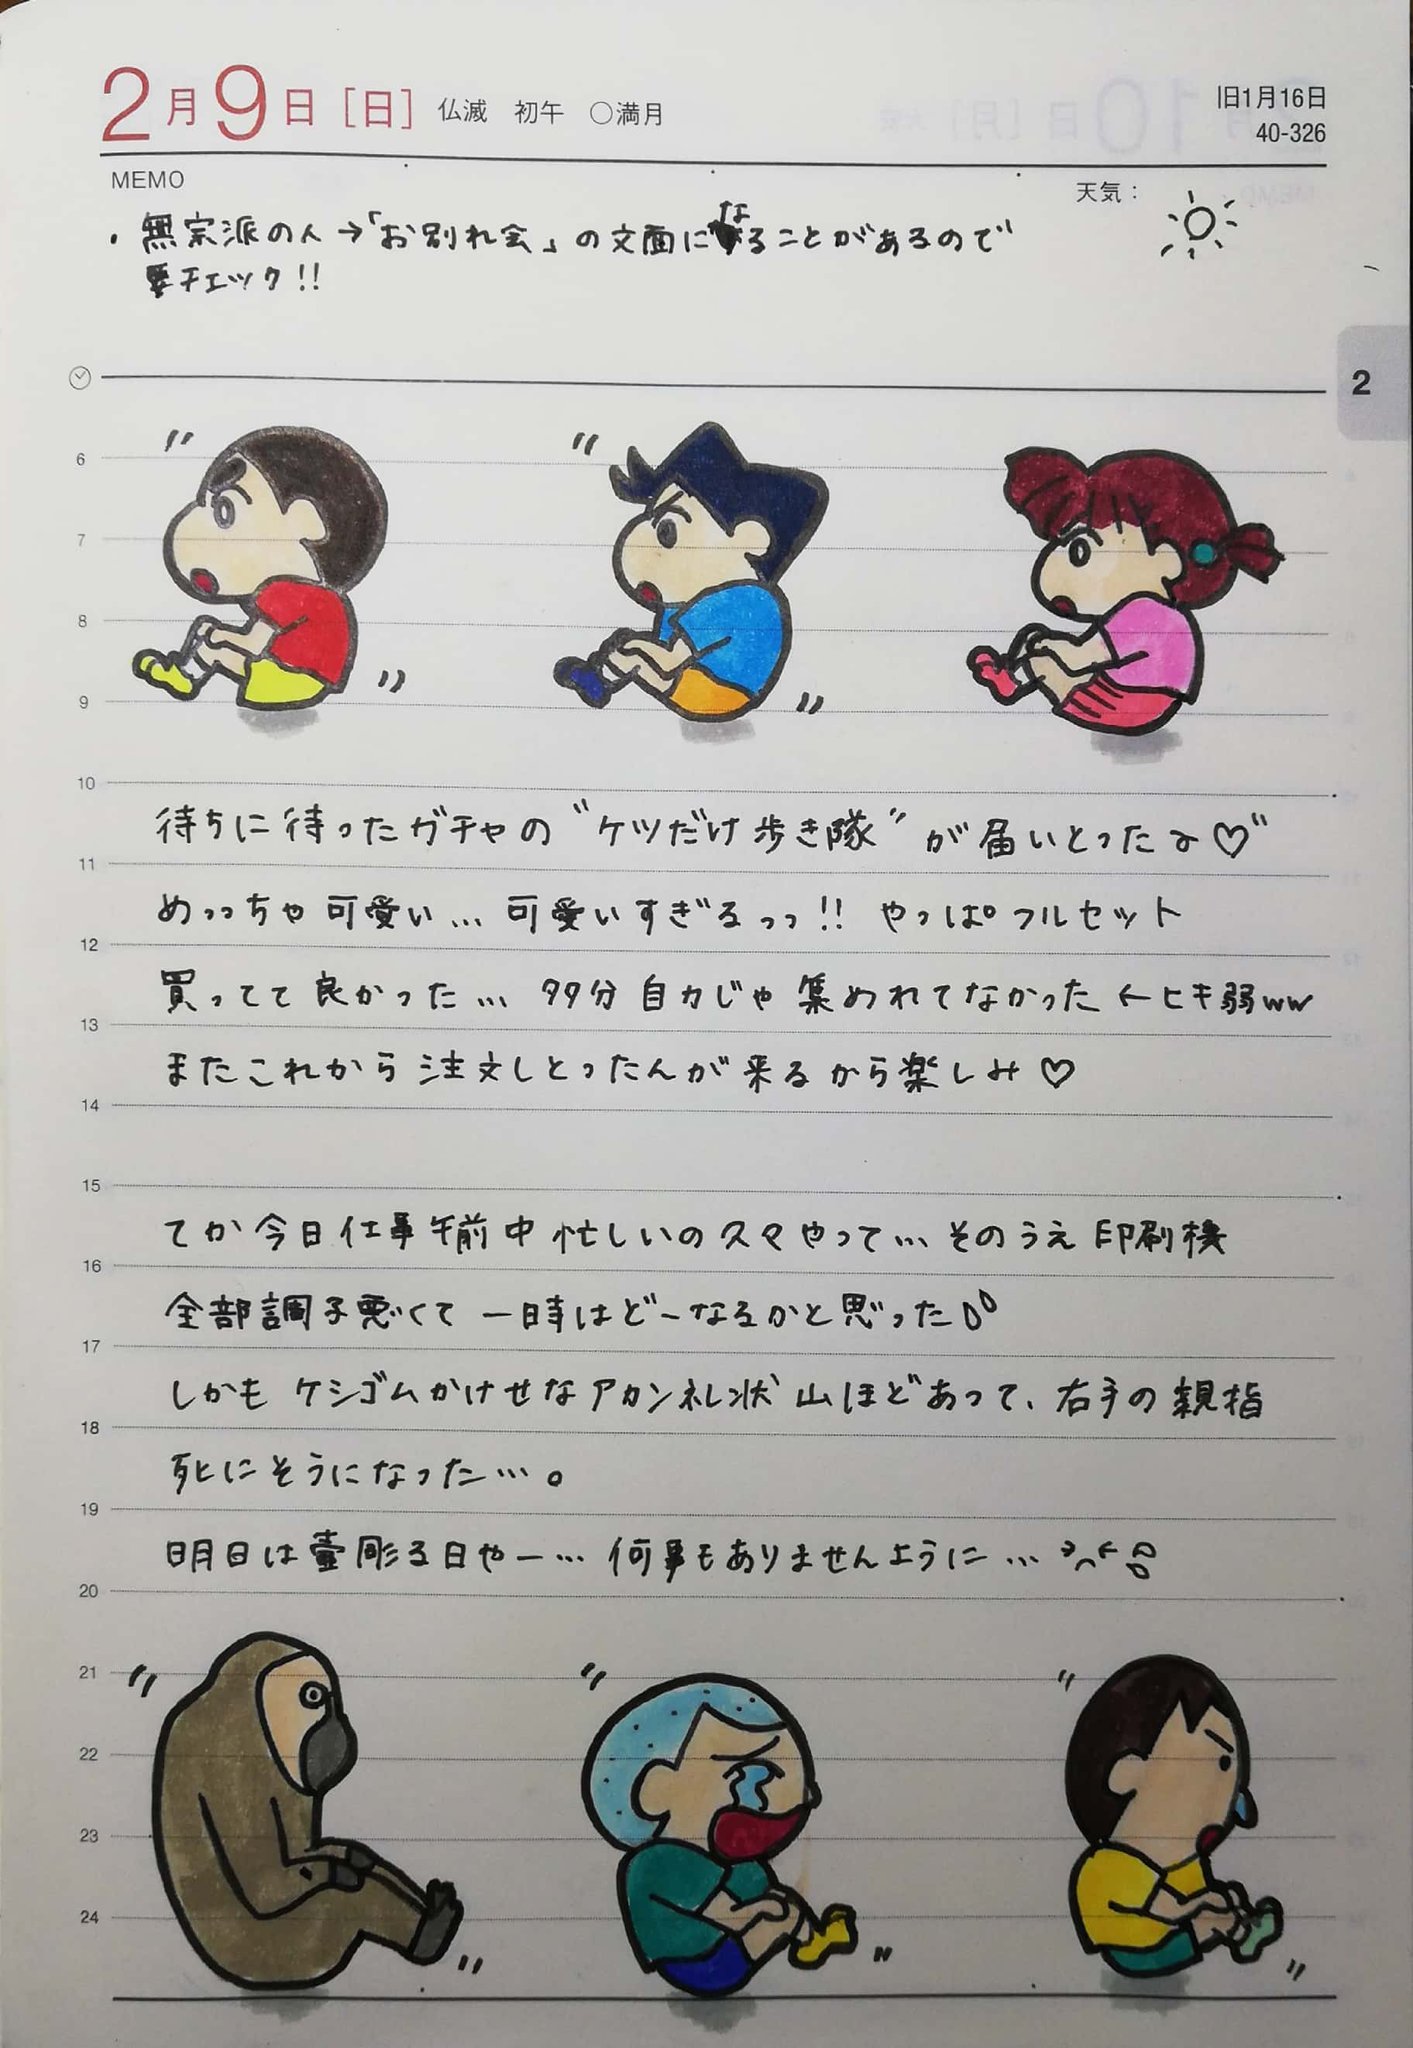 2月9日[日] 仏滅 初午 ○満月
旧1月16日
40-326
MEMO
天気：
・無宗派の人→「お別れ会」の文面になることがあるので
要チェック!!
2
6
7
8
9
10
待ちに待ったガチャの"ケツだけ歩き隊"が届いとったよ♡"
11
めっっちゃ可愛い… 可愛いすぎるっっ!! やっぱフルセット
12
買ってて良かった… 99分自力じゃ集めれてなかった ←ヒキ弱ww
13
またこれから注文しとったんが来るから楽しみ♡
14
15
てか今日仕事午前中忙しいのスマやって… そのうえ印刷機
16
全部調子悪くて 一時はどーなるかと思った
17
しかもケシゴムかけせなアカン礼状山ほどあって、右手の親指
18
死にそうになった…。
19
明日は壷彫る日やー… 何事もありませんように…
20
21
22
23
24